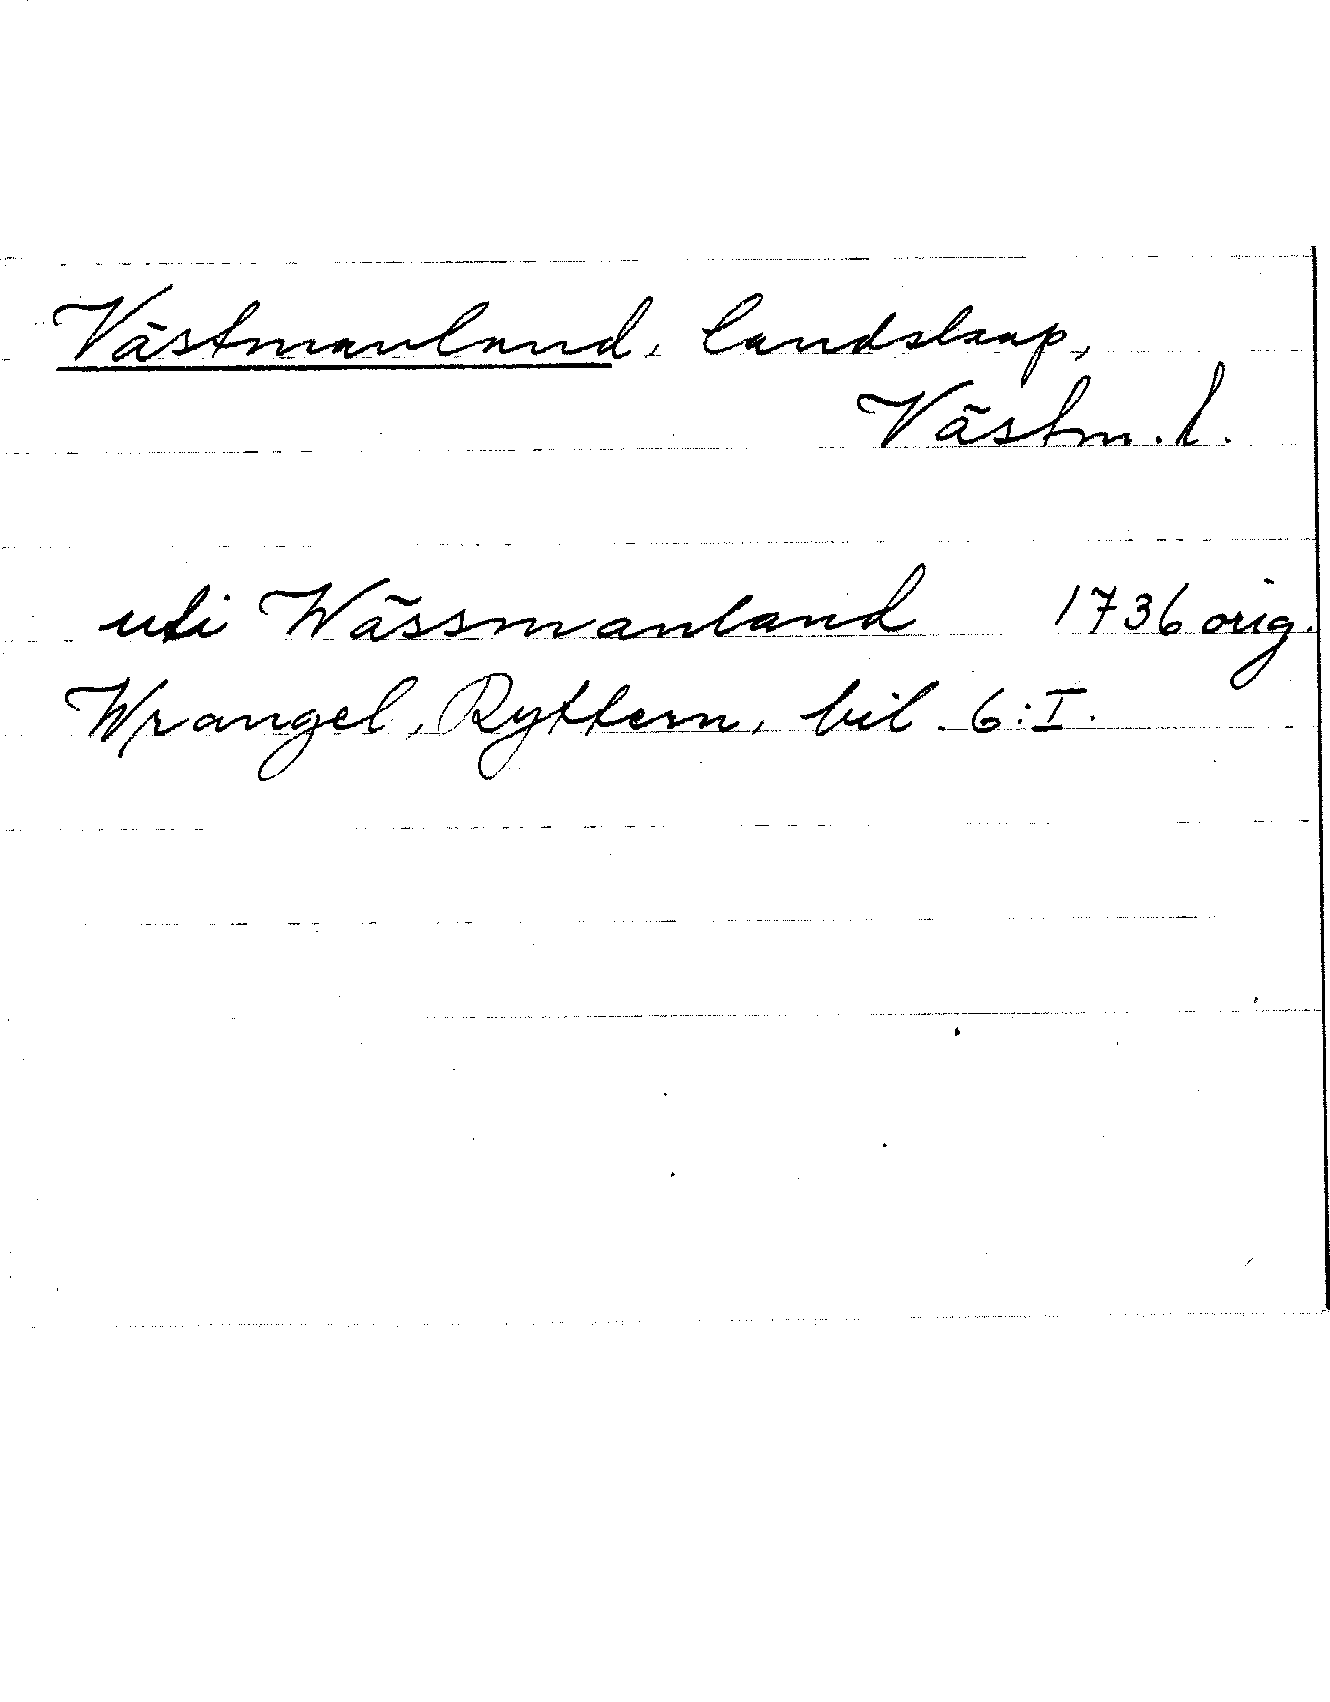 Västmanland, landskap,
Västm. l.
uti Wässmanland 1736 orig.
Wrangel, Ryttern, bil. 6:I.